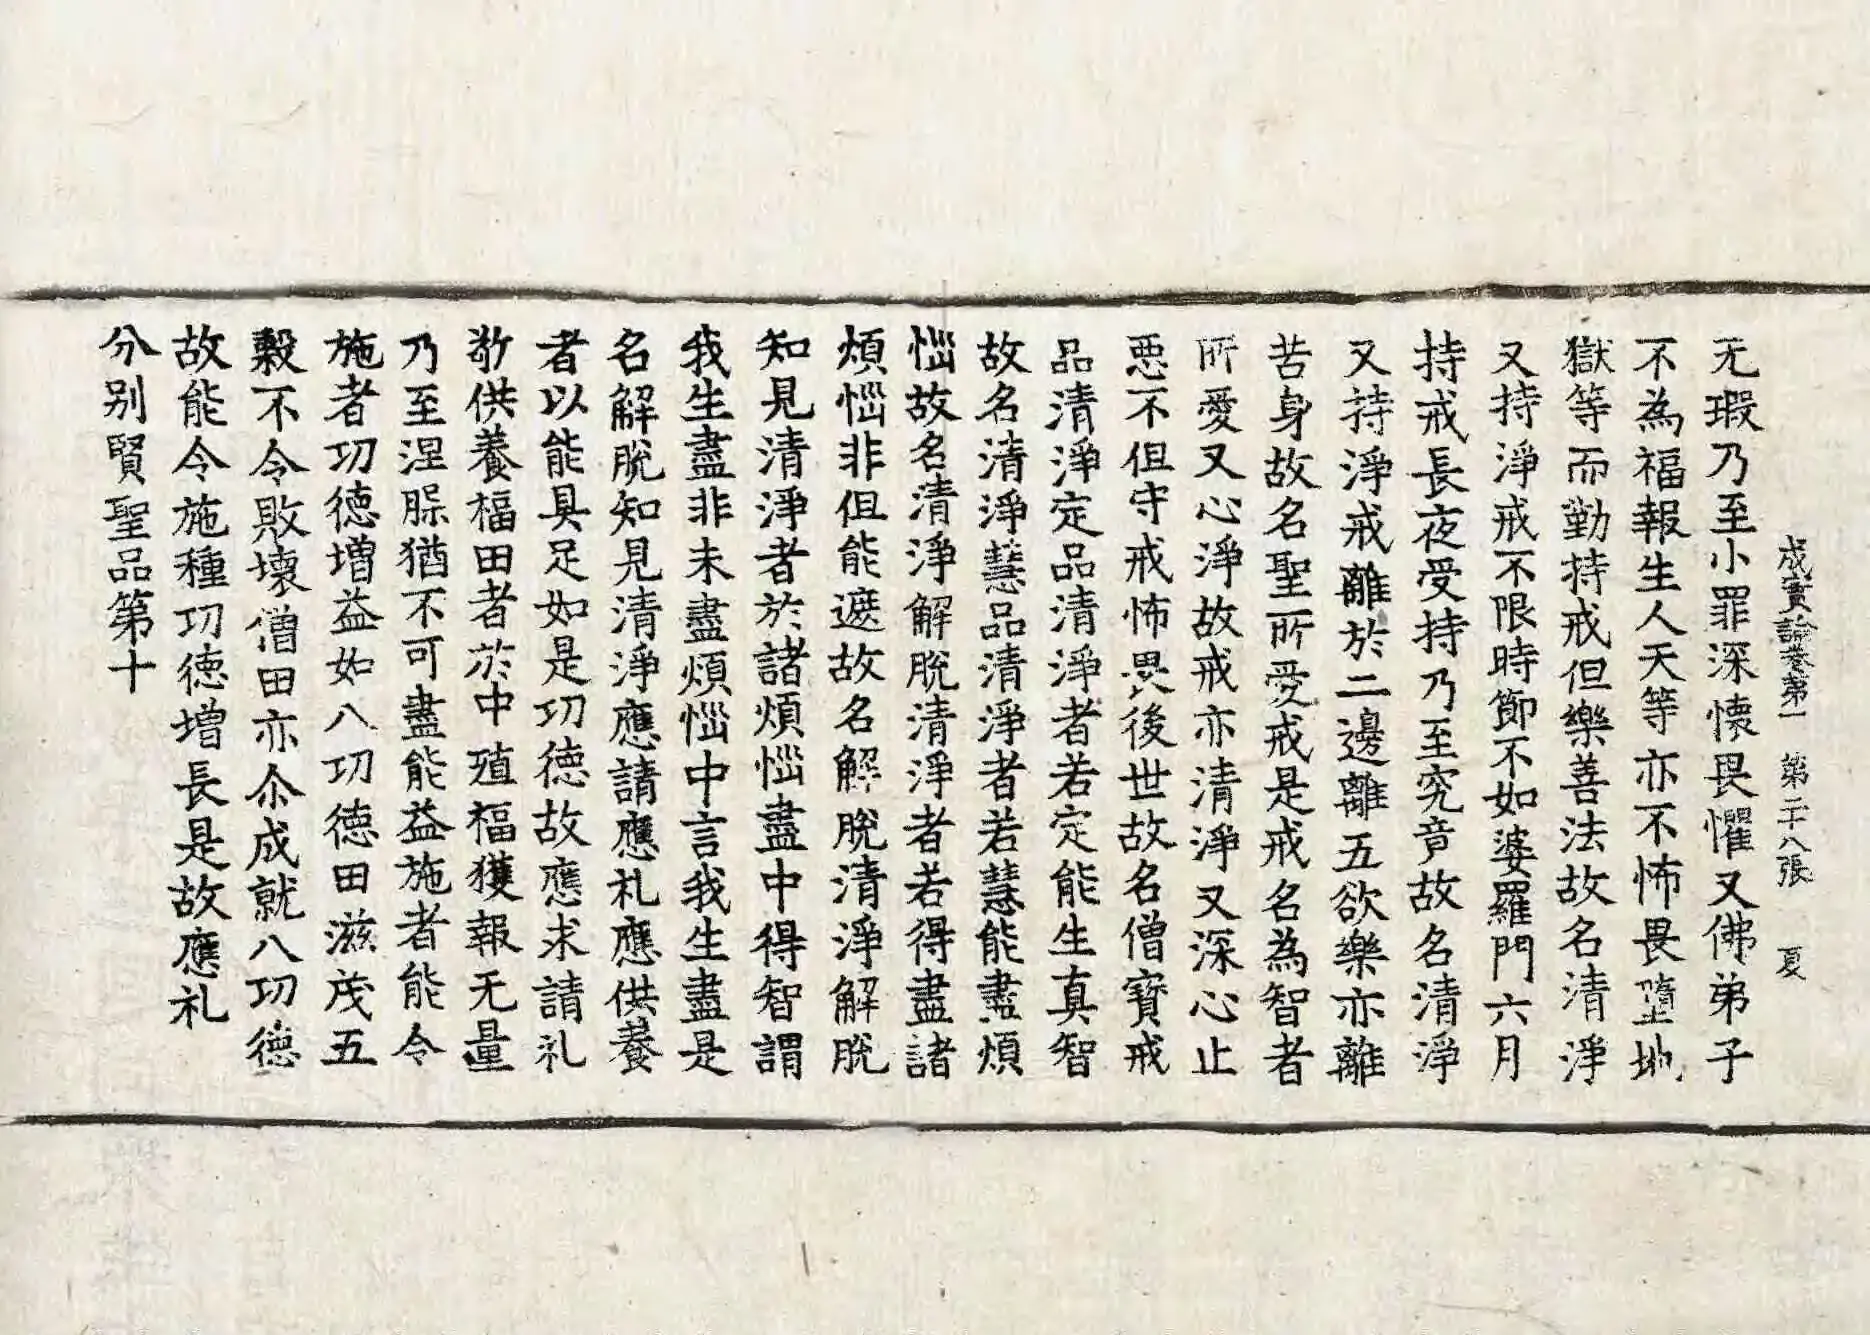 成實論卷第一　第二十八張　夏
无瑕乃至小罪深懷畏懼又佛弟子
不為福報生人天等亦不怖畏墮地
獄等而勤持戒但樂善法故名清淨
又持淨戒不限時節不如婆羅門六月
持戒長夜受持乃至究竟故名清淨
又持淨戒離於二邊離五欲樂亦離
苦身故名聖所愛戒是戒名為智者
所愛又心淨故戒亦清淨又深心止
惡不但守戒怖畏後世故名僧寶戒
品清淨定品清淨者若定能生真智
故名清淨慧品清淨者若慧能盡煩
惱故名清淨解脫清淨者若得盡諸
煩惱非但能遮故名解脫清淨解脫
知見清淨者於諸煩惱盡中得智謂
我生盡非未盡煩惱中言我生盡是
名解脫知見清淨應請應礼應供養
者以能具足如是功德故應求請礼
敬供養福田者於中殖福獲報无量
乃至涅槃猶不可盡能益施者能令
施者功德增益如八功德田滋茂五
穀不令敗壞僧田亦尒成就八功德
故能令施種功德增長是故應礼
分別賢聖品第十